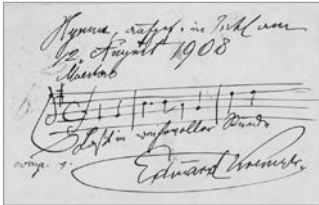 Hymne, aufgef. in Ischl am
2. August 1908
Maestoso
Laßt in weihevoller Stunde
comp. v.
Eduard Kremser.